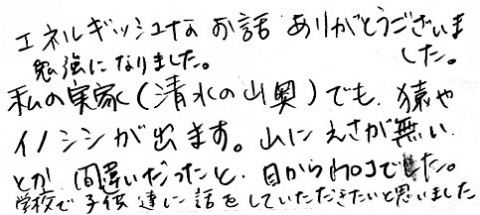 エネルギッシュなお話ありがとうございま
した。
勉強になりました。
私の実家(清水の山奥)でも、猿や
イノシシが出ます。山にえさが無い
とか、間違いだったと、目からウロコでした。
学校で子供達に話をしていただきたいと思いました